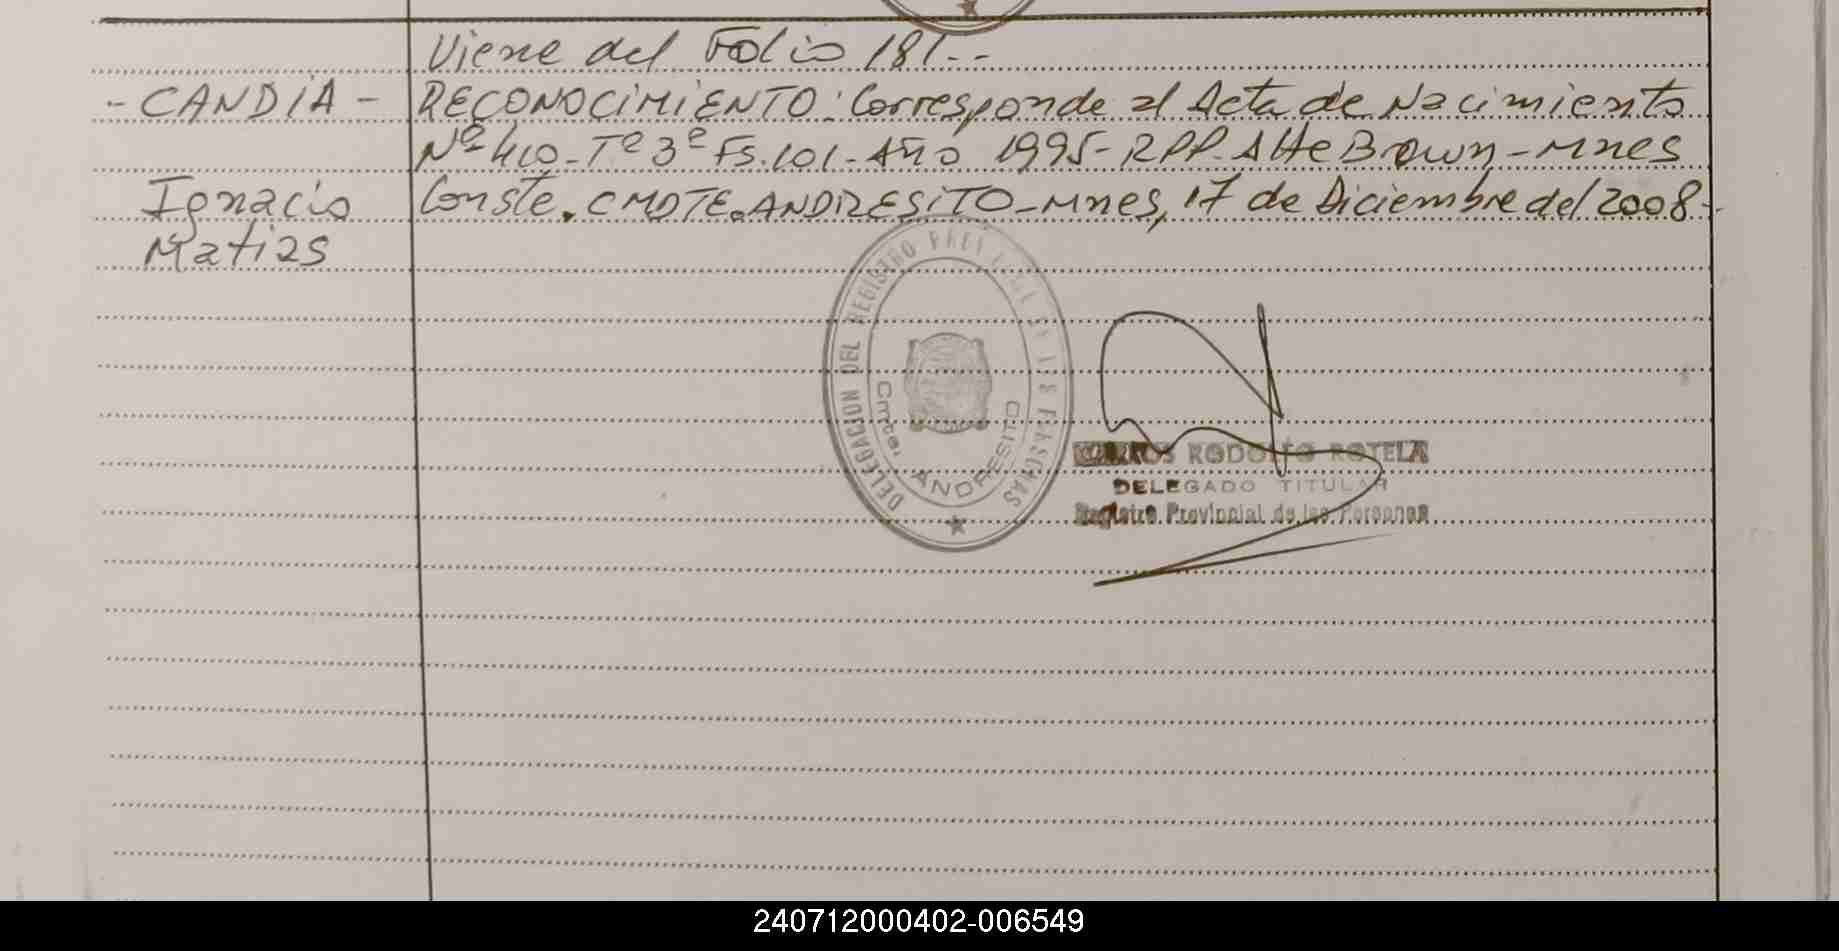 Viene del Folio 181.--
- CANDIA - RECONOCIMIENTO: Corresponde al Acta de Nacimiento
Nº 410 - Tº 3º Fs. 101 - Año 1995 - RPP. Alte Brown - Mnes
Ignacio Conste. CMDTE. ANDRESITO - Mnes, 17 de Diciembre del 2008 -
Matias
DELEGACION DEL REGISTRO PROVINCIAL DE LAS PERSONAS
Cmte. ANDRESITO
CARLOS RODOLFO ROTELA
DELEGADO TITULAR
Registro Provincial de las Personas
240712000402-006549